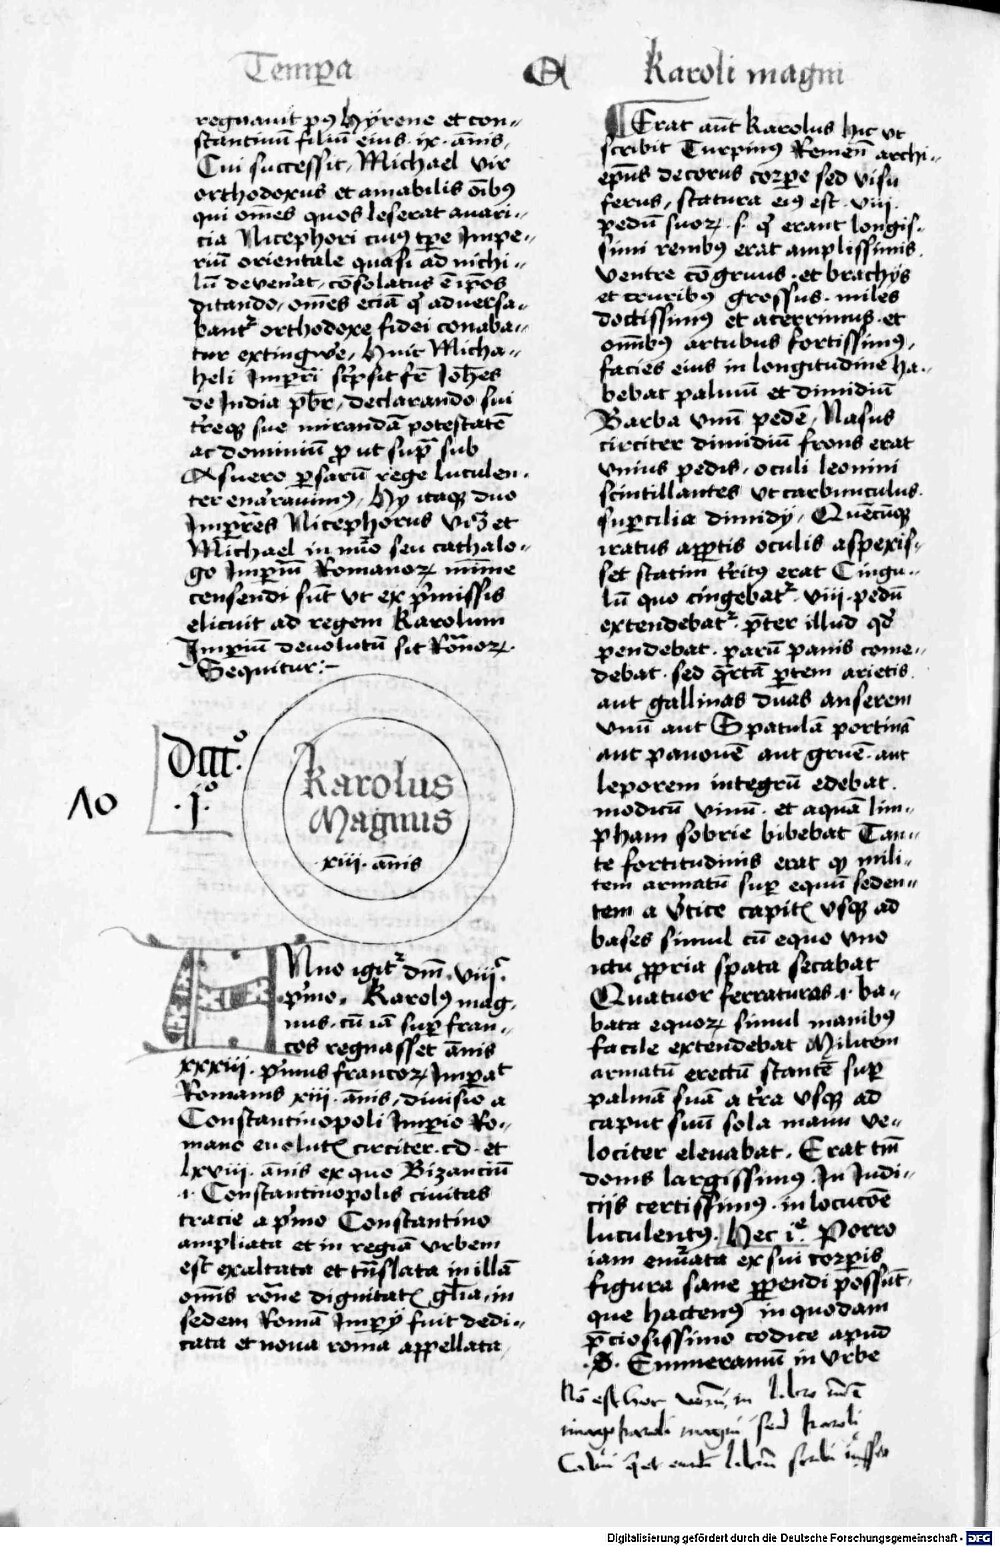 Temp̄a
Karoli magni
regnauit p9 hyrene et con-
stantinū filiū eius ix annis
Cui successit Michael vir
orthodoxus et amabilis oībꝰ
qui om̄es quos leserat auari-
cia Nicephori cuiꝰ tp̄e Impe-
riū orientale quasi ad nichi-
lū deuen̄at, cōsolatus ē ip̄os
ditando, om̄es eciā q̄ aduersa-
bant͛ orthodoxe fidei conaba-
tur extingwe, Huic Micha-
heli Imp̄ri sc̄psit fr̄ Joh̄es
de India p̄br̄, declarando sui
tr̄eqꝫ sue mirandā potestatē
ac dominiū ꝓut sup̄ sub
Aſuero ꝑsarū rege luculen-
ter enarauimꝰ, Hy itaqꝫ duo
Imp̄res Nicephorus vꝫ et
Michael in nūo seu cathalo-
go Imp̄iū Romanoꝝ mīme
censendi sūt vt ex p̄missis
elicuit ad regem Karolum
Impiū deuolutū sit Rōnoꝝ.
Sequitur:-
DCCCº
·jº·
10
Karolus
Magnus
xiii annis
ANno igit͛ dn̄i viiiᶜ
p̄mo. Karolꝰ mag-
nus. cū iā sup̄ fran-
cos regnasset ānis
xxxiii. p̄mus francoꝝ Imp̄at
Romanis xiii. annis, diuisio a
Constantinopoli Imp̄io Ro-
mano euolutꝭ circiter cd. et
lxviii. annis ex quo Bizanciū
.i. Constantinopolis ciuitas
tracie a p̄mo Constantino
ampliata et in regiā vrbem
est exaltata et tn̄slata in illā
om̄is rōne dignitatꝭ gl̄ia, in
sedem Romā Imp̄ij fuit dedi-
cata et noua roma appellata
Erat aūt Karolus hic vt
scribit Turpinꝰ Remen̄ archi-
ep̄us decorus corpe sed visu
ferus, statura eiꝰ est viii
pedū suoꝝ .s. q̄ erant longis-
simi renibꝰ erat amplissimis
ventre cōgruus et brachijs
et cruribꝰ grossus. miles
doctissimꝰ et acerrimus et
omībꝰ artubus fortissimꝰ,
facies eius in longitudine ha-
bebat palmū et dimidiū
Barba vnū pedē, Nasus
circiter dimidiū frons erat
vnius pedis, oculi leonini
scintillantes vt carbunculus
supcilia dimidij, Quēcūqꝫ
iratus apptis oculis aspexis-
set statim tr̄itꝰ erat Cingu-
lū quo cingebat͛ viii pedū
extendebat͛ p̄ter illud qđ
pendebat. parū panis come-
debat sed q̄rtā p̄tem arietis
aut gallinas duas anserem
vnū aut Spatulā porcinā
aut pauonē aut gruē aut
leporem integrū edebat
modicū vinū et aquā lim-
pham sobrie bibebat Tan-
te fortitudinis erat q̄ mili-
tem armatū sup equū seden-
tem a v̄tice capitꝭ vsqꝫ ad
bases simul cū equo vno
ictu ꝓpria spata secabat
Quatuor ferraturas .i. ba-
bata equoꝝ simul manibꝰ
facile extendebat Militem
armatū erectū stantē sup
palmā suā a tr̄a vsqꝫ ad
caput suū sola manu ve-
lociter eleuabat. Erat tm̄
donis largissimꝰ, In Judi-
ciis certissimꝰ in locucōe
luculentꝰ. Hec ie Porro
iam enūata ex sui corpis
figura sane ppendi possūt
que hactenꝰ in quodam
p̄ciosissimo codice apud
·S· Emmeramū in vrbe
Nō est hoc verū, in libro
imago karoli magni sed karoli
Calui q̄ et eūdē librū scribi iussit
Digitalisierung gefördert durch die Deutsche Forschungsgemeinschaft - DFG